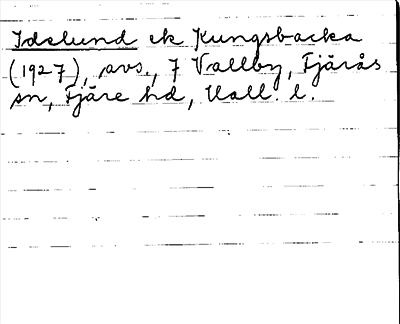 Idslund ek Kungsbacka
(1927), avs., 7 Vallby, Fjärås
sn, Fjäre hd, Hall. l.